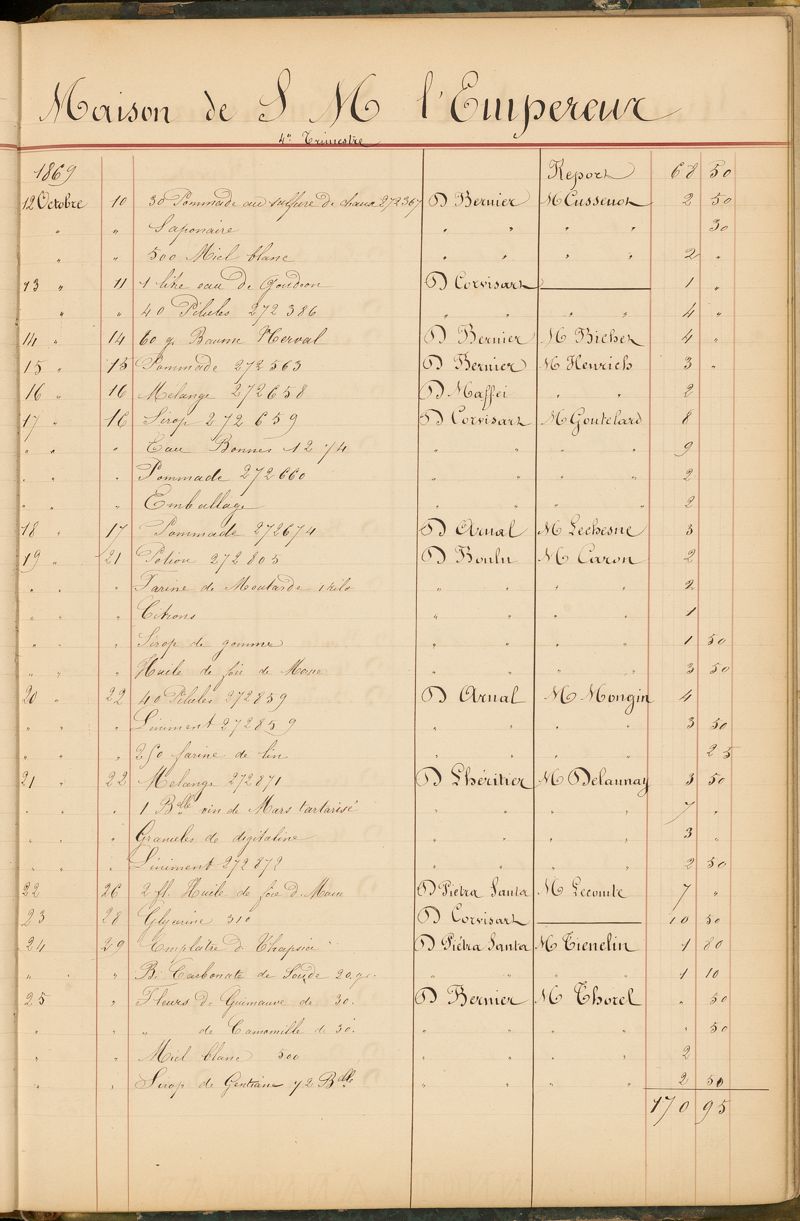 Maison de S M l'Empereur
4e Trimestre
1869 Report 68 50
12 Octobre 10 30 Pommade au sulfure de chaux 272367 D Bernier M Cussenot 2 50
" " Saponaire " " " " 30
" " 500 Miel blanc " " " " 2 "
13 " 11 1 litre eau de Goudron D Corvisart 1 "
" " 40 Pilules 272 386 " " " " 4 "
14 " 14 60 g. Baume Nerval D Bernier M Bicher 4 "
15 " 15 Pommade 272563 D Bernier M Henrich 3 "
16 " 16 Melange 272658 D Maffei " " 2
17 " 16 Sirop 272 659 D Corvisart M Goutelard 8
" " " Eau Bonnes 12 1/4 " " " " 9
" " " Pommade 272660 " " " " 2
" " " Emballage " " " " 2
18 " 17 Pommade 272674 D Arnal M Lechesne 3
19 " 21 Potion 272805 D Boulu M Caron 2
" " " Farine de Moutarde 1 kilo " " " " 2
" " " Citrons " " " " 1
" " " Sirop de gomme " " " " 1 50
" " " Huile de foie de Morue " " " " 3 50
20 " 22 40 Pilules 272859 D Arnal M Mongin 4
" " " Liniment 272859 " " " " 3 50
" " " 250 farine de lin " " " " 25
21 " 22 Melange 272871 D Lhéritier M Delaunay 3 50
" " " 1 Blle vin de Mars tartarisé " " " " 7 "
" " " Granules de digitaline " " " " 3 "
" " " Liniment 272872 " " " " 2 50
22 26 2 fl. Huile de foie d Morue D Pietra Santa M Lecomte 7 "
23 28 Glycerine 310 D Corvisart 10 50
24 29 Emplatre d Thapsia D Piétra Santa M Tienelin 1 80
" " " B. Carbonate de Soude 20 g. " " " " 1 10
25 " Fleurs de Guimauve de 30. D Bernier M Thorel " 50
" " " de Camomille de 30. " " " " " 50
" " Miel blanc 500 " " " " 2
" " Sirop de Gentiane 1/2 Blle " " " " 2 50
170 95